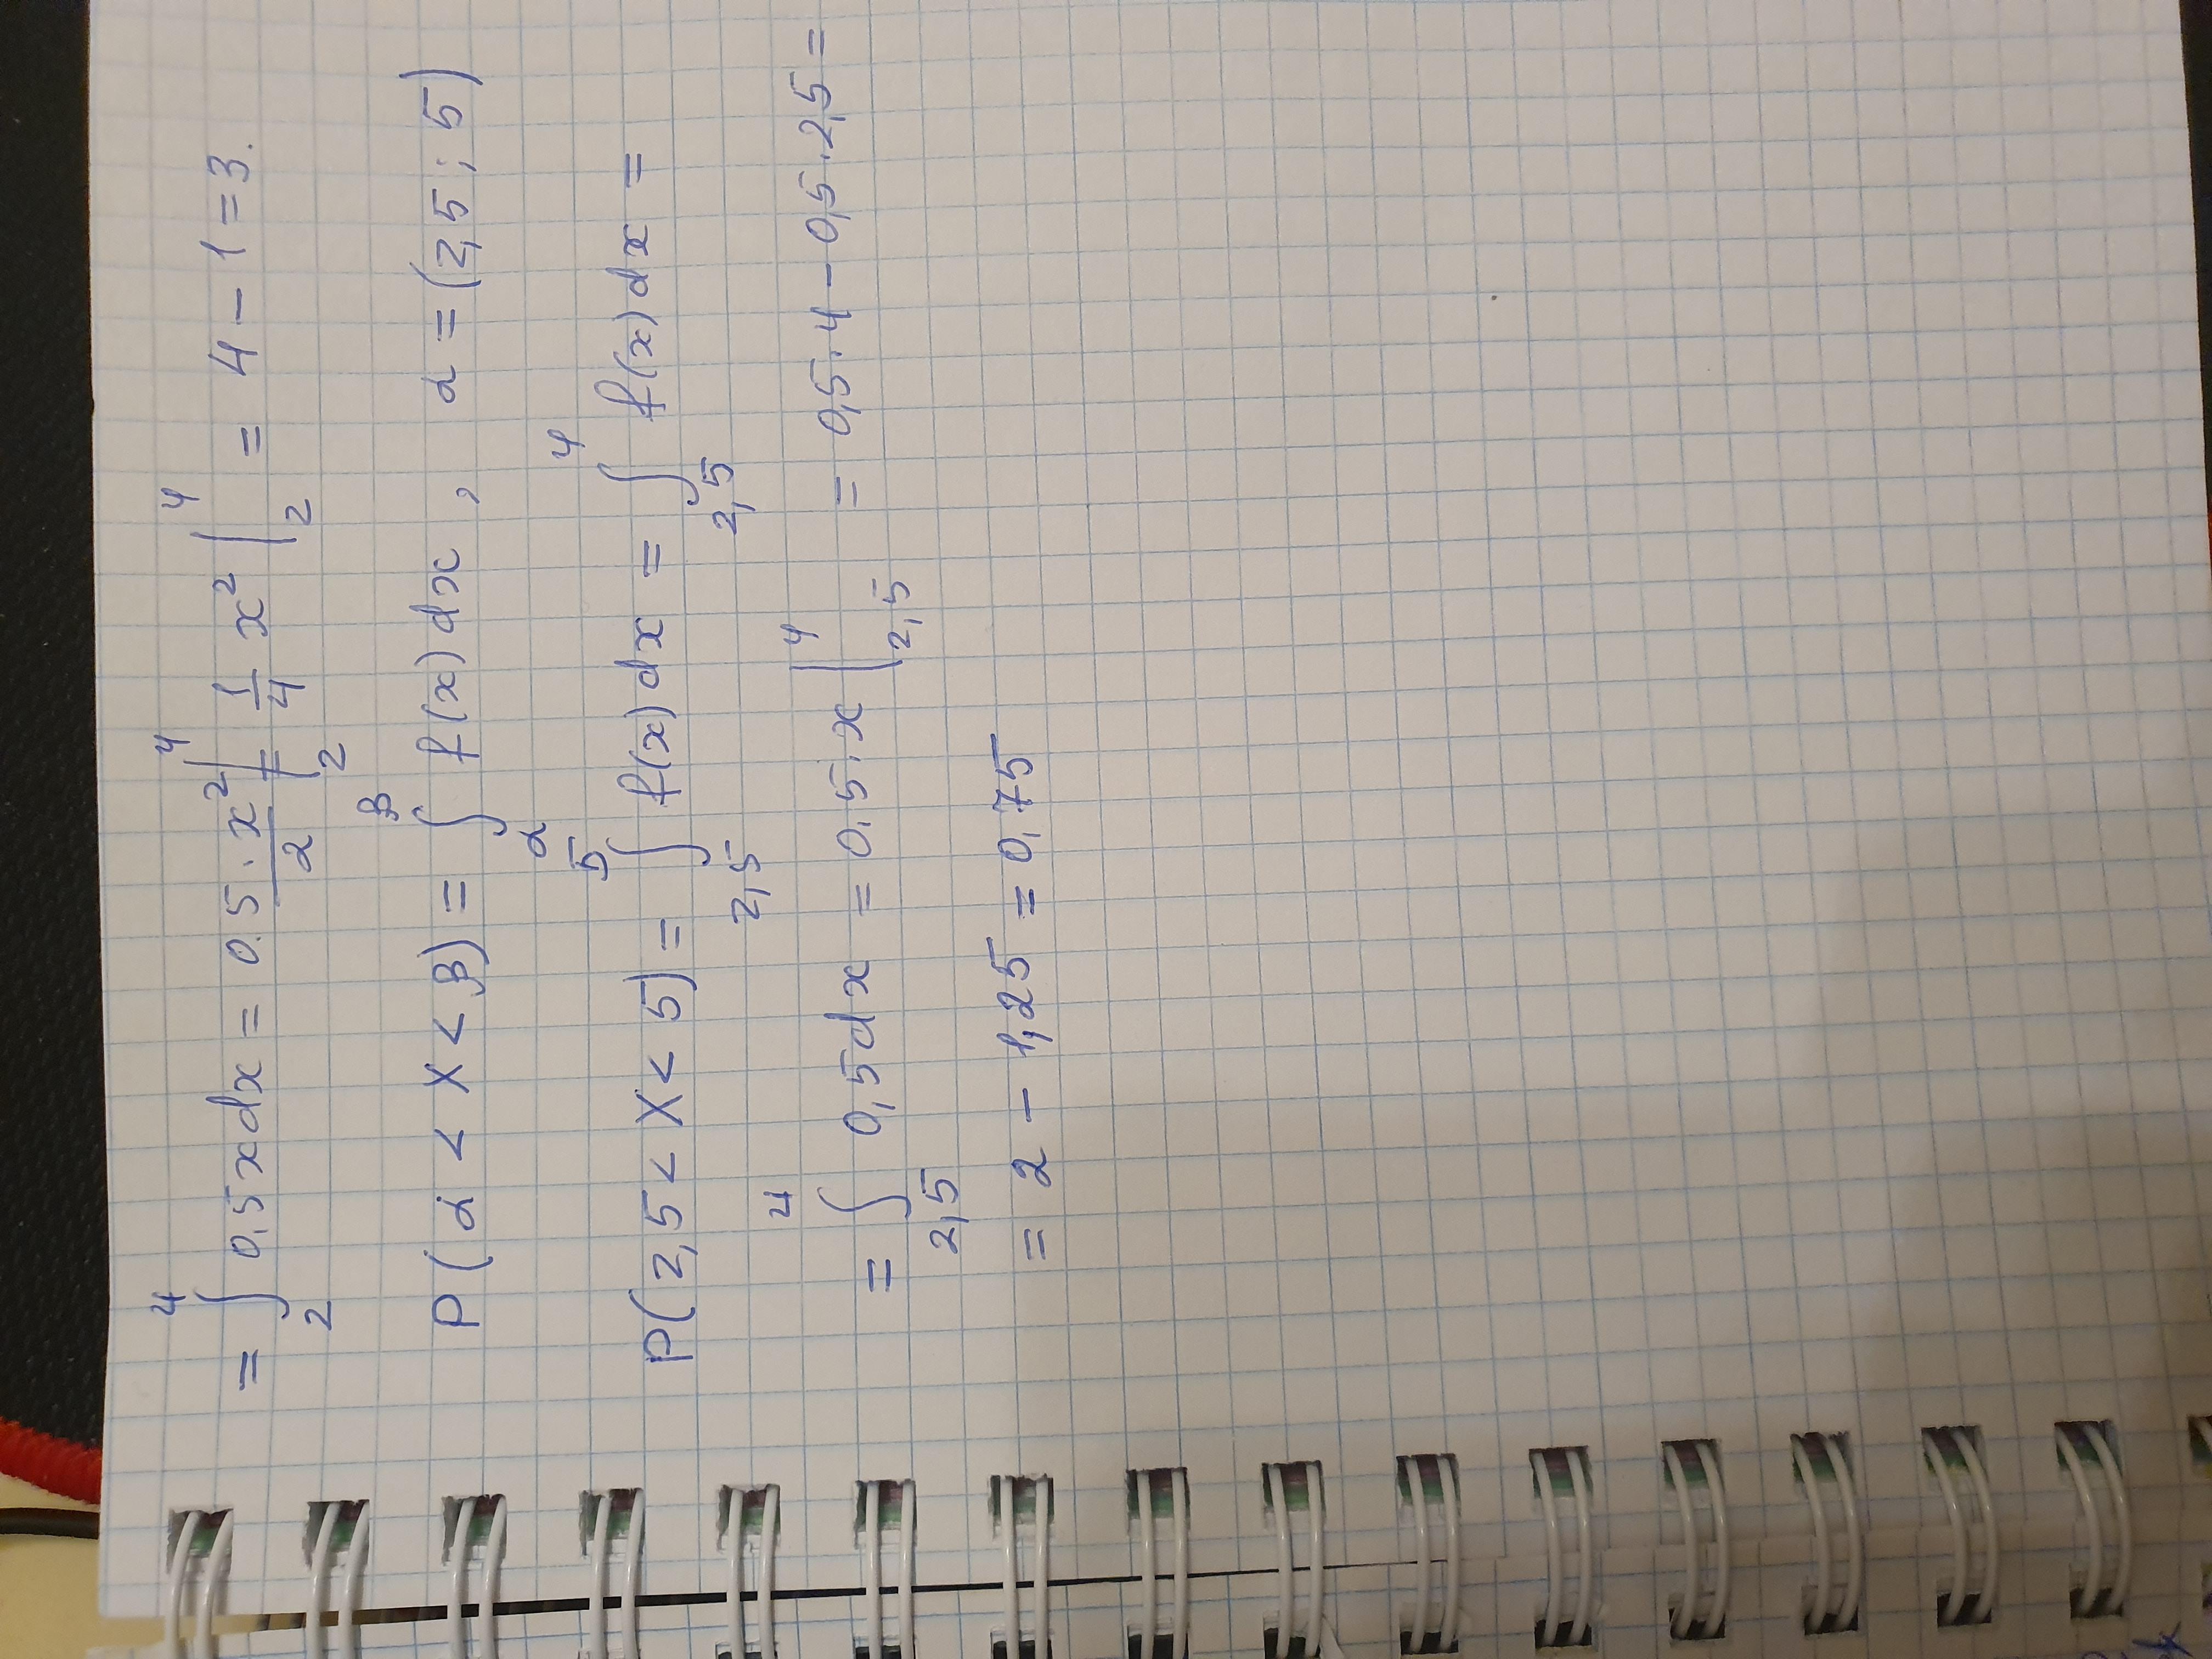 = ∫₂⁴ 0,5xdx = 0.5 · x²/2 |₂⁴ = 1/4 x² |₂⁴ = 4 - 1 = 3.
P(α < X < β) = ∫_α^β f(x)dx , α = (2,5 ; 5)
P(2,5 < X < 5) = ∫_2,5^5 f(x)dx = ∫_2,5^4 f(x)dx =
= ∫_2,5^4 0,5dx = 0,5 · x |_2,5^4 = 0,5 · 4 - 0,5 · 2,5 =
= 2 - 1,25 = 0,75